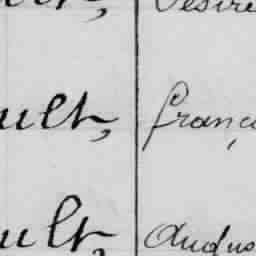 Désiré
ult, franç
ult, Augus